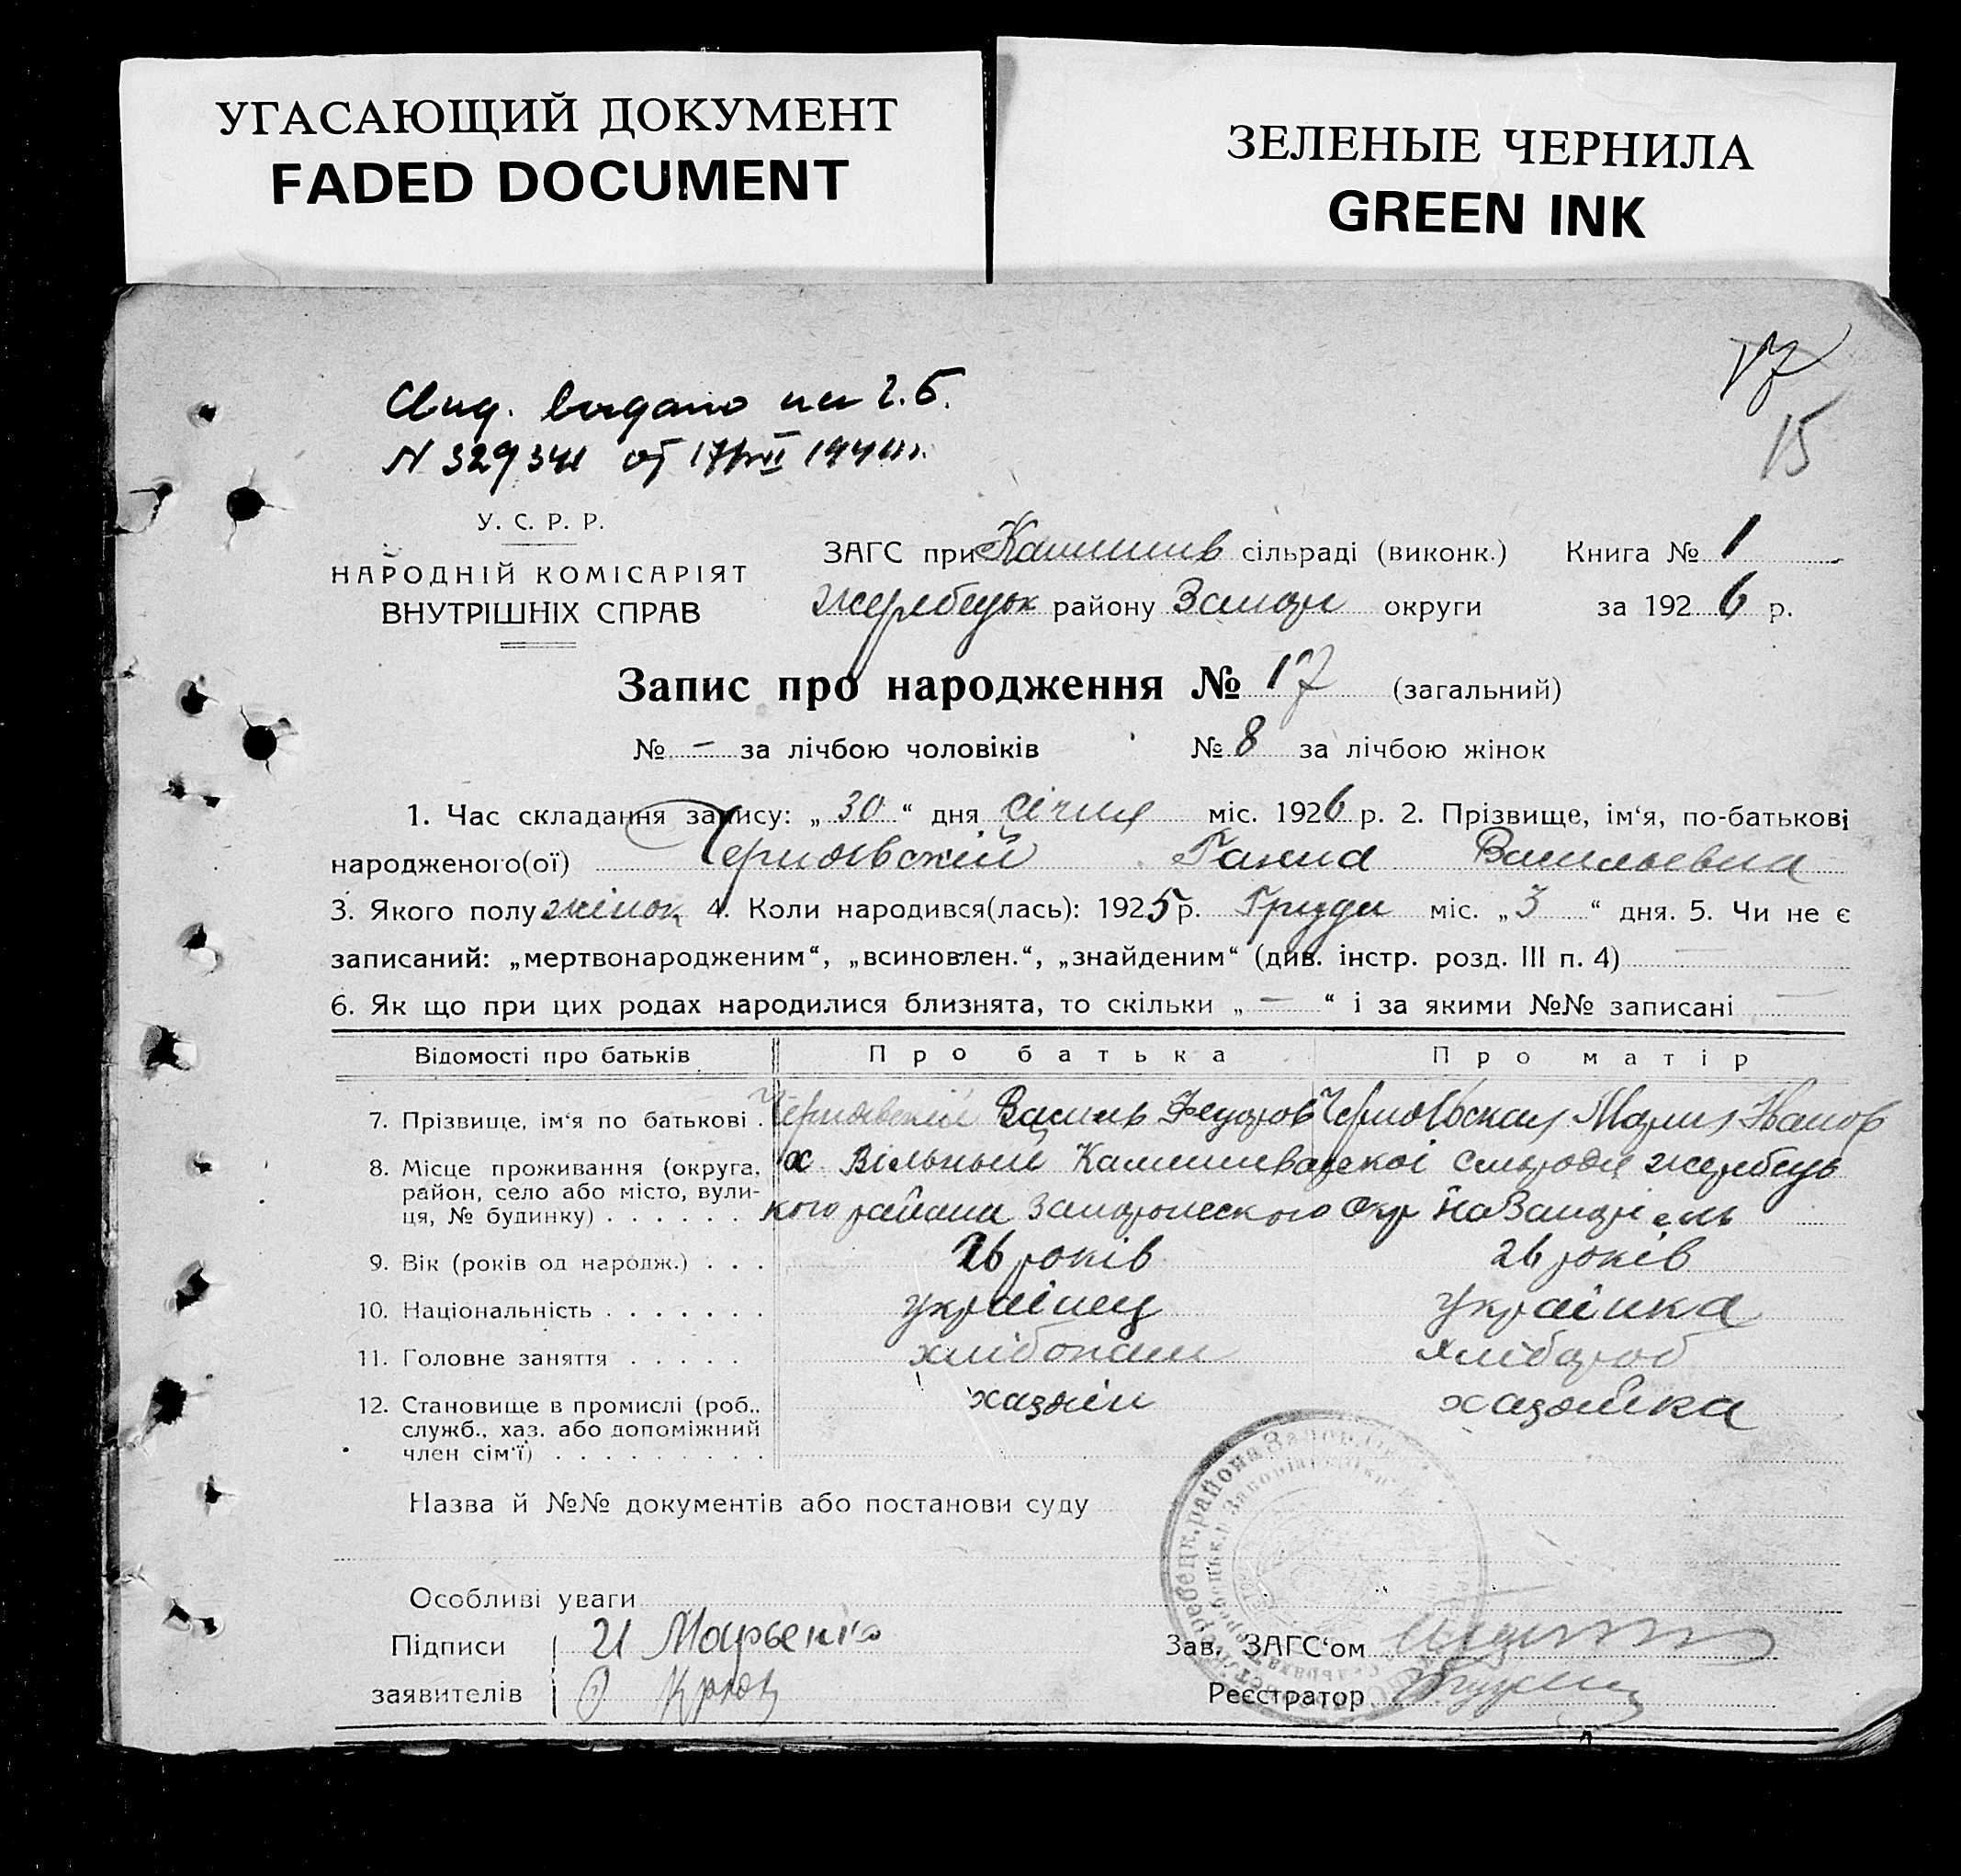 УГАСАЮЩИЙ ДОКУМЕНТ
FADED DOCUMENT
ЗЕЛЕНЫЕ ЧЕРНИЛА
GREEN INK
17
15
Свид. выдано
N 329341 от 17/VII
У. С. Р. Р.
НАРОДНІЙ КОМІСАРІЯТ
ВНУТРІШНІХ СПРАВ
ЗАГС при сільраді (виконк.) Книга № 1
Жеребецьк району Запор округи за 192 6 р.
Запис про народження № 17 (загальний)
№ – за лічбою чоловіків № 8 за лічбою жінок
1. Час складання запису: „ 30 “ дня Січня міс. 1926 р. 2. Прізвище, ім‘я, по-батькові
народженого(ої) Ганна Васильевна
3. Якого полу жіноч 4. Коли народився(лась): 1925 р. Грудн міс. „ 3 “ дня. 5. Чи не є
записаний: „мертвонародженим“, „всиновлен.“, „знайденим“ (див. інстр. розд. III п. 4) —
6. Як що при цих родах народилися близнята, то скільки „ — “ і за якими №№ записані —
Відомості про батьків Про батька Про матір
7. Прізвище, ім‘я по батькові . Василь Федоров Мария Иванов
8. Місце проживання (округа, х Вільный
район, село або місто, вули-
ця, № будинку) . . . . . . кого района Окр
9. Вік (років од народж.) . . . 26 років 26 років
10. Національність . . . . . . . українец українка
11. Головне заняття . . . . . хлібопаш хлібороб
12. Становище в промислі (роб., хазяин хазяйка
служб., хаз. або допоміжний
член сім‘ї) . . . . . . . . .
Назва й №№ документів або постанови суду
Особливі уваги
Підписи И Марьенко
заявителів
Зав. ЗАГС‘ом
Реєстратор